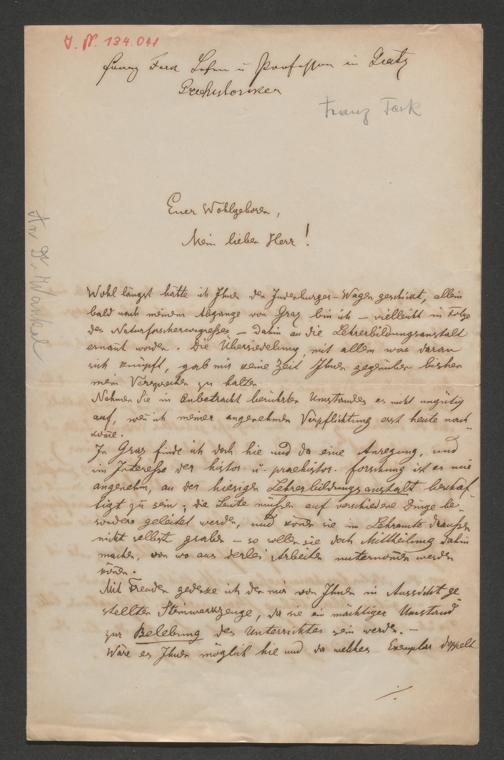 J. N. 134.041
Franz Ferk Lehrer u Professor in Gratz
Praehistoriker
Franz Ferk
An Dr. Wankel
Euer Wohlgeboren,
Mein lieber Herr!
Wohl längst hätte ich Ihnen den Judenburger-Wagen geschickt, allein
bald nach meinem Abgange von Graz bin ich – vielleicht in Folge
des Naturforschercongreßes – dahin an die Lehrerbildungsanstalt
ernannt worden. Die Übersiedelung mit allem was daran
sich knüpft, gab mir keine Zeit Ihnen gegenüber bisher
mein Versprechen zu halten.
Nehmen Sie in Anbetracht berührter Umstandes es nicht ungütig
auf, wenn ich meiner angenehmen Verpflichtung erst heute nach-
käme.
In Graz finde ich doch hie und da eine Anregung, und
im Interesse der histor. u. praehistor. Forschung ist es mir
angenehm, an der hiesigen Lehrerbildungsanstalt beschäf-
tigt zu sein; die Leute müßen auf verschiedene Dinge be-
sonders geleitet werden, und können sie im Lehramte draußen
nicht selbst graben – so sollen sie doch Mittheilung dahin
machen, von wo aus derlei Arbeiten unternommen werden
können.
Mit Freuden gedenke ich der mir von Ihnen in Aussicht ge-
stellten Steinwerkzeuge, da sie ein mächtiger Umstand
zur Belebung des Unterrichtes sein werden. –
Wäre es Ihnen möglich hie und da welches Exemplar doppelt
./.